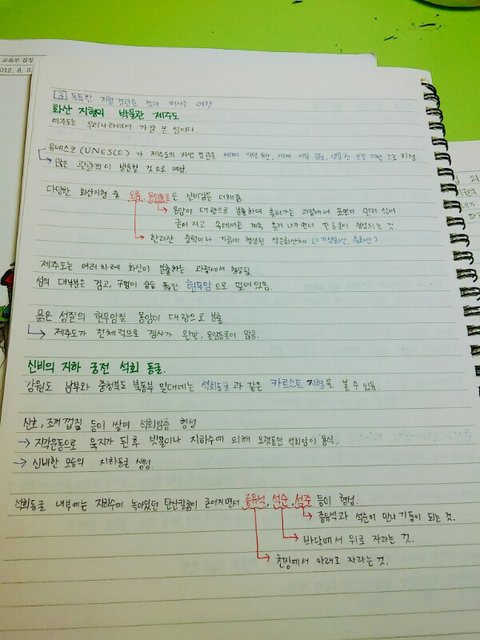 교육부 검정
2012. 8. 3
3 독특한 지형 경관을 찾아 떠나는 여행
화산 지형의 박물관 제주도
제주도는 우리나라에서 가장 큰 섬이다.
유네스코(UNESCO)가 제주도의 자연 경관을 세계 자연 유산, 세계 지질 공원, 생물권 보전 지역 으로 지정.
많은 관광객이 방문할 것으로 예상.
다양한 화산지형 중 오름 용암동굴은 신비감을 더해줌.
용암이 대량으로 분출하여 흘러가는 과정에서 표면이 먼저 식어
굳어지고 속에서는 계속 흘러 나가면서 빈 동굴이 형성되는 것.
한라산 중턱이나 기슭에 형성된 작은화산체
제주도는 여러차례 화산이 분출하는 과정에서 형성됨.
섬의 대부분은 검고, 구멍이 송송 뚫린 현무암으로 덮여있음.
묽은 성질의 현무암질 용암이 대량으로 분출
제주도가 전체적으로 경사가 완만, 용암동굴이 많음.
신비의 지하 궁전 석회 동굴.
강원도 남부와 충청북도 북동부 일대에는 석회동굴과 같은 카르스트 지형을 볼 수 있음.
산호, 조개 껍질 등이 쌓여 석회암층 형성
→ 지각운동으로 육지가 된 후 빗물이나 지하수에 의해 오랫동안 석회암이 용식.
→ 신비한 모습의 지하동굴 생성.
석회동굴 내부에는 지하수에 녹아있던 탄산칼슘이 굳어지면서 종유석, 석순, 석주 등이 형성.
종유석과 석순이 만나 기둥이 되는 것.
바닥에서 위로 자라는 것.
천장에서 아래로 자라는 것.